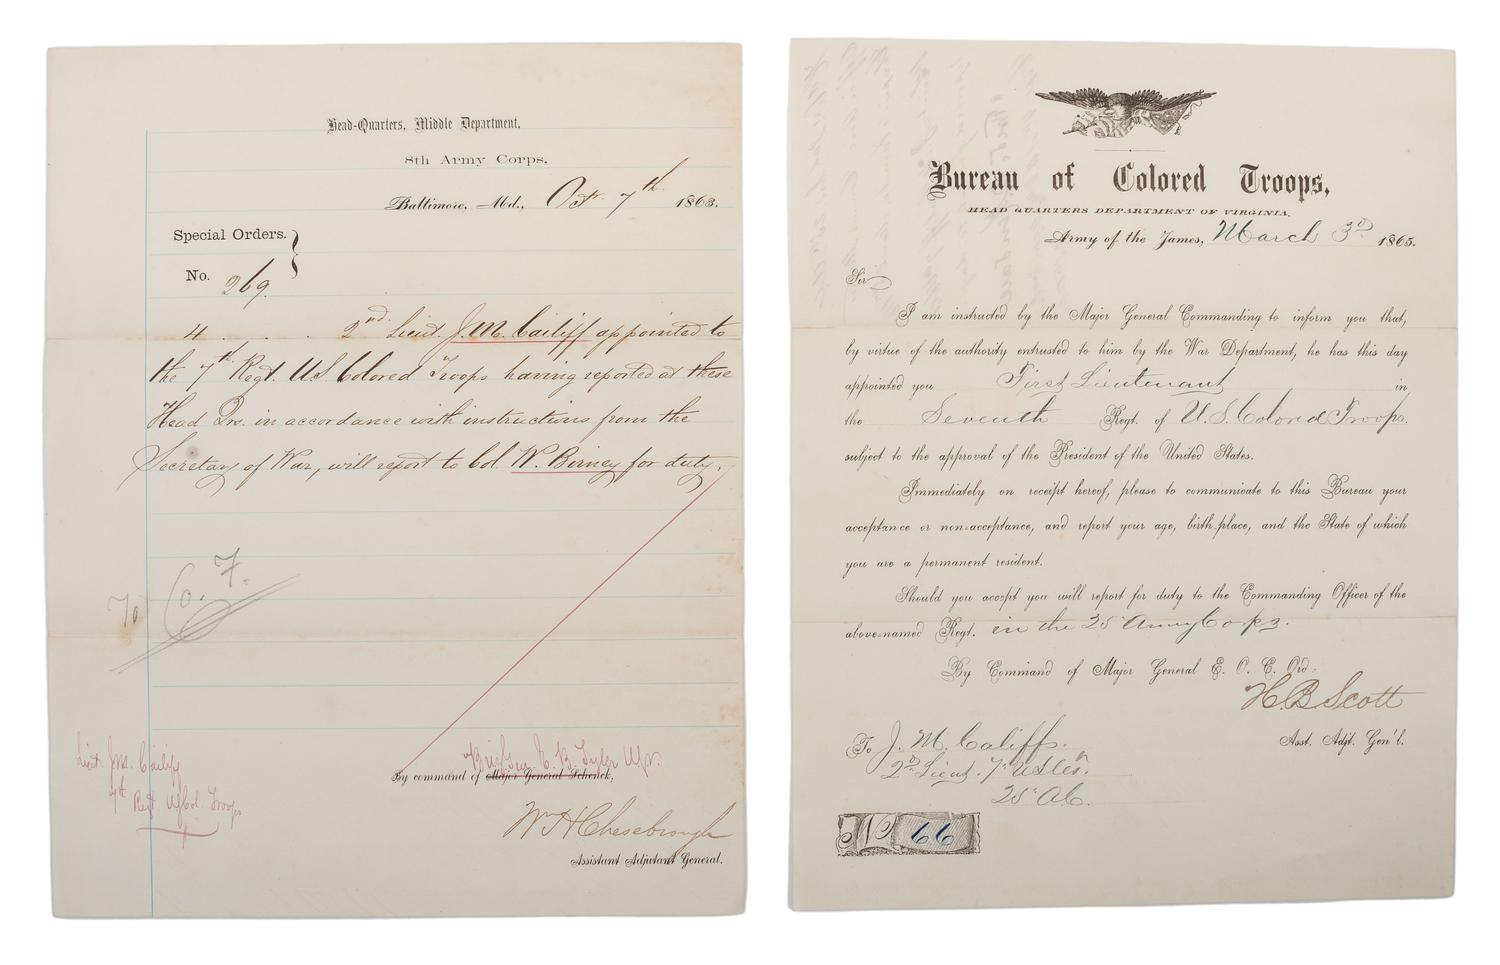 Head-Quarters, Middle Department,
8th Army Corps,
Baltimore, Md., Oct. 7th 1863.
Special Orders.
No. 269.
4 . . . . 2nd Lieut. J.M. Califf appointed to
the 7th Regt. U.S. Colored Troops having reported at these
Head Qrs. in accordance with instructions from the
Secretary of War, will report to Col. W. Birney for duty.
Co. F.
To
Lieut J.M. Califf
7th Regt US Col. Troops
Brig Gen E. B. Tyler
By command of Major General Schenck,
Wm H Chesebrough
Assistant Adjutant General.
Bureau of Colored Troops,
HEAD QUARTERS DEPARTMENT OF VIRGINIA,
Army of the James, March 3d 1865.
Sir
I am instructed by the Major General Commanding to inform you that,
by virtue of the authority entrusted to him by the War Department, he has this day
appointed you First Lieutenant in
the Seventh Regt. of U.S. Colored Troops.
subject to the approval of the President of the United States.
Immediately on receipt hereof, please to communicate to this Bureau your
acceptance or non-acceptance, and report your age, birth-place, and the State of which
you are a permanent resident.
Should you accept you will report for duty to the Commanding Officer of the
above-named Regt. in the 25' Army Corps.
By Command of Major General E. O. C. Ord:
H.B Scott
Asst. Adjt. Gen'l.
To J. M. Califf.
2d Lieut. 7
25' AC.
No 66